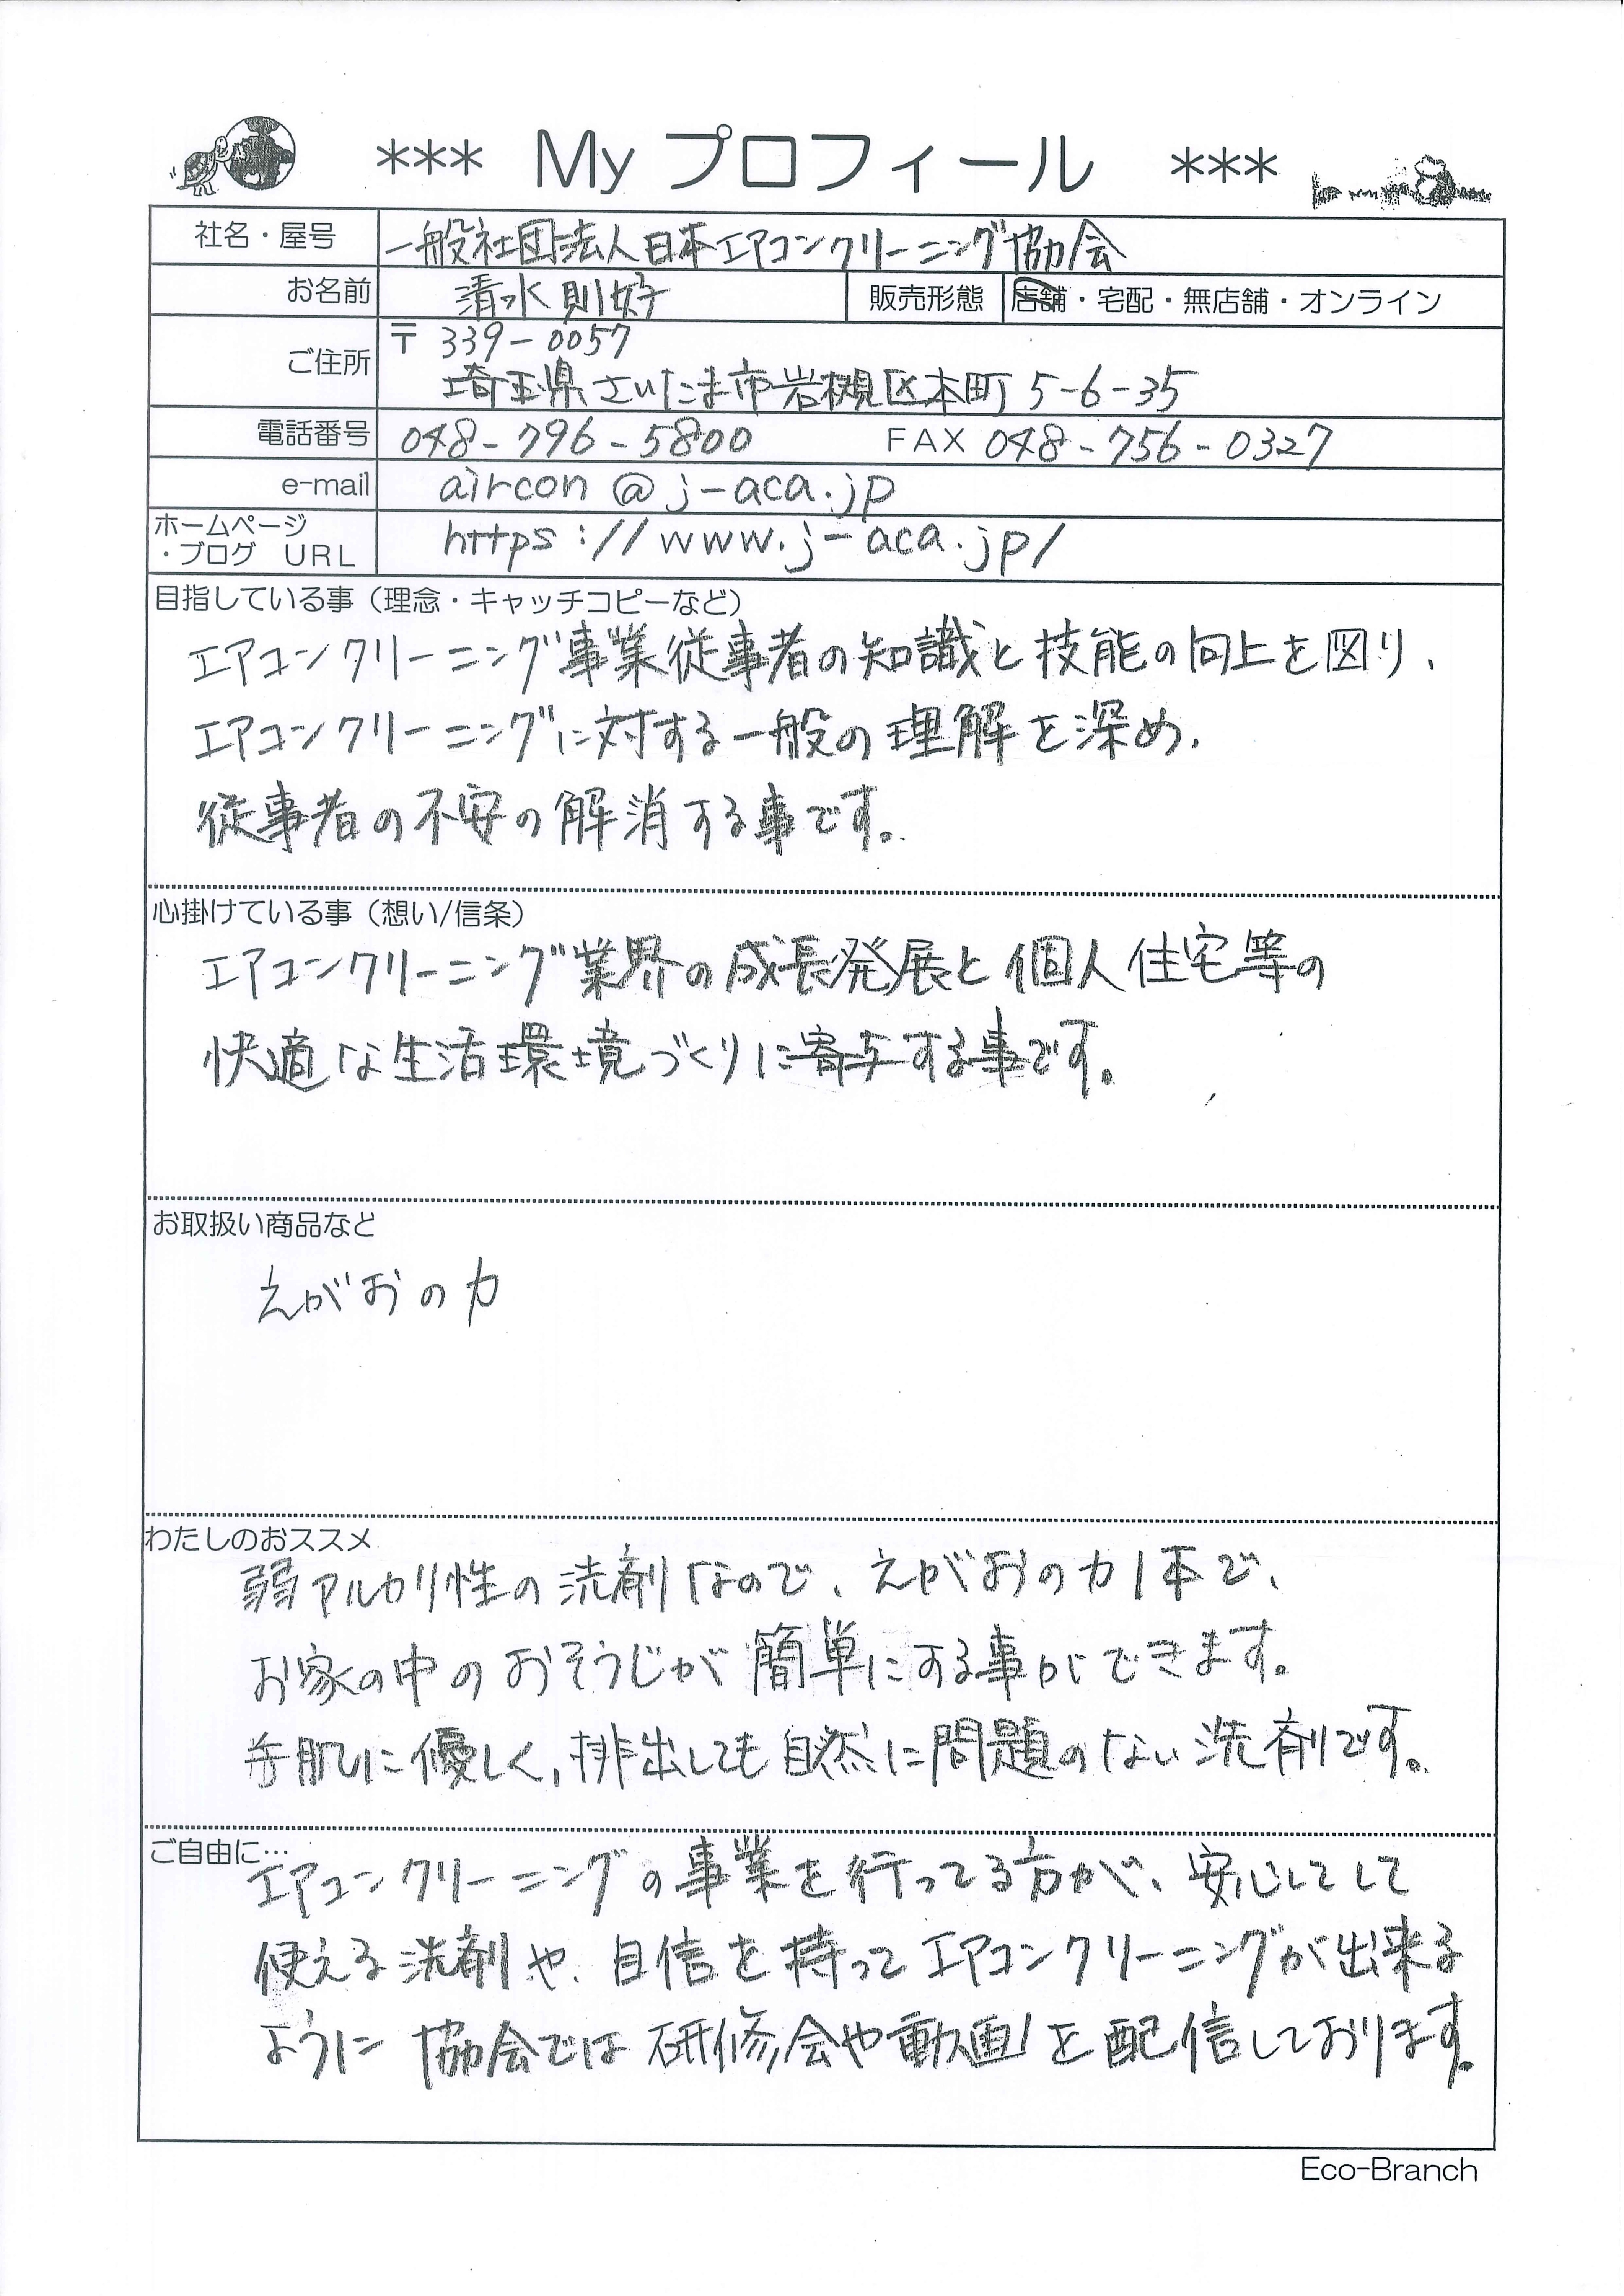 *** My プロフィール ***
社名・屋号 一般社団法人日本エアコンクリーニング協会
お名前 清水則好 販売形態 店舗・宅配・無店舗・オンライン
ご住所 〒339-0057
埼玉県さいたま市岩槻区本町5-6-35
電話番号 048-796-5800 FAX 048-756-0327
e-mail aircon@j-aca.jp
ホームページ
・ブログ URL https://www.j-aca.jp/
目指している事（理念・キャッチコピーなど）
エアコンクリーニング事業従事者の知識と技能の向上を図り、
エアコンクリーニングに対する一般の理解を深め、
従事者の不安の解消する事です。
心掛けている事（想い/信条）
エアコンクリーニング業界の成長発展と個人住宅等の
快適な生活環境づくりに寄与する事です。
お取扱い商品など
えがおの力
わたしのおススメ
弱アルカリ性の洗剤なので、えがおの力1本で、
お家の中のおそうじが簡単にする事ができます。
手肌に優しく、排出しても自然に問題のない洗剤です。
ご自由に…
エアコンクリーニングの事業を行ってる方が、安心してして
使える洗剤や、自信を持ってエアコンクリーニングが出来る
ように協会では研修会や動画を配信しております。
Eco-Branch